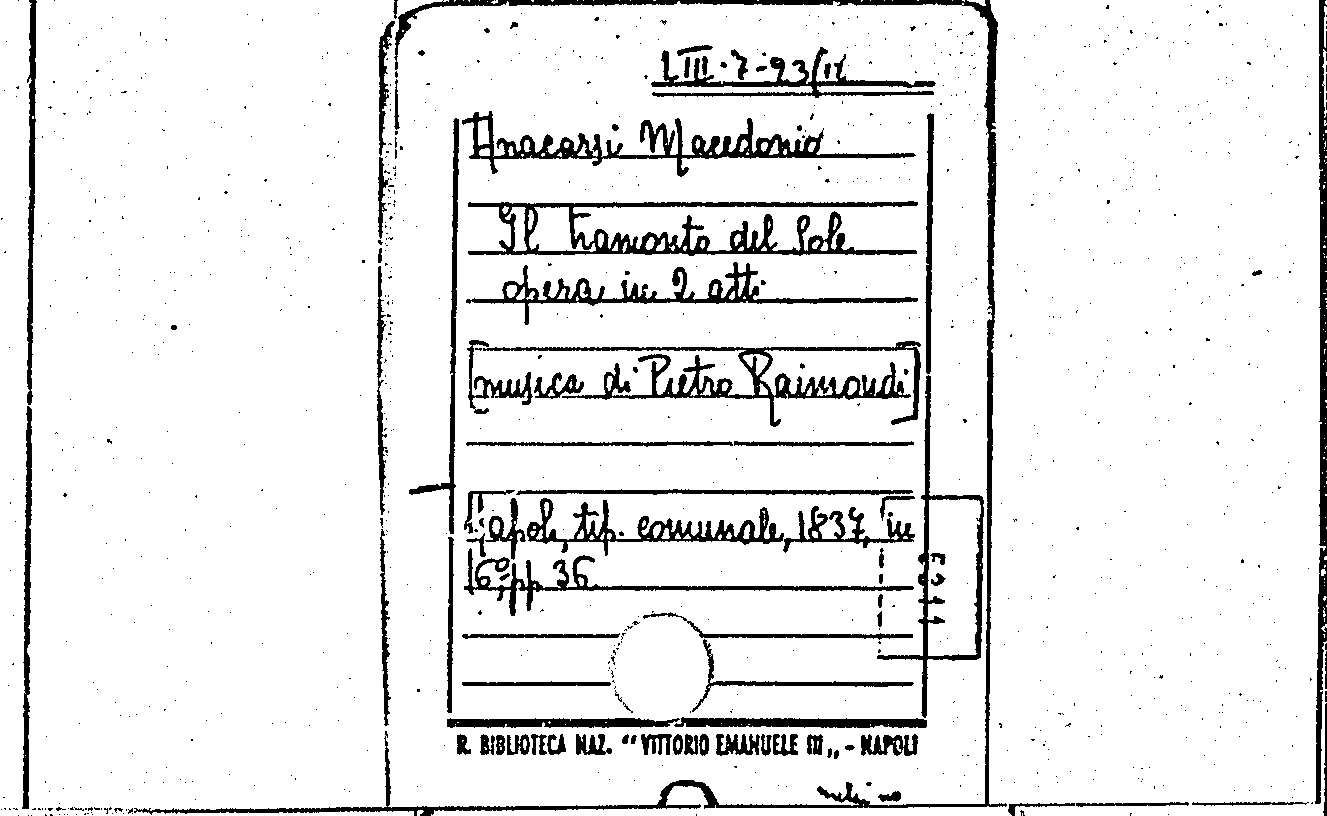 LIII·7-93/11
Anacarsi Macedonio
Il Tramonto del Sole
opera in 2 atti
[musica di Pietro Raimondi]
Napoli, tip. comunale, 1837, in
16º, pp 36
R. BIBLIOTECA NAZ. “ VITTORIO EMANUELE III „ - NAPOLI